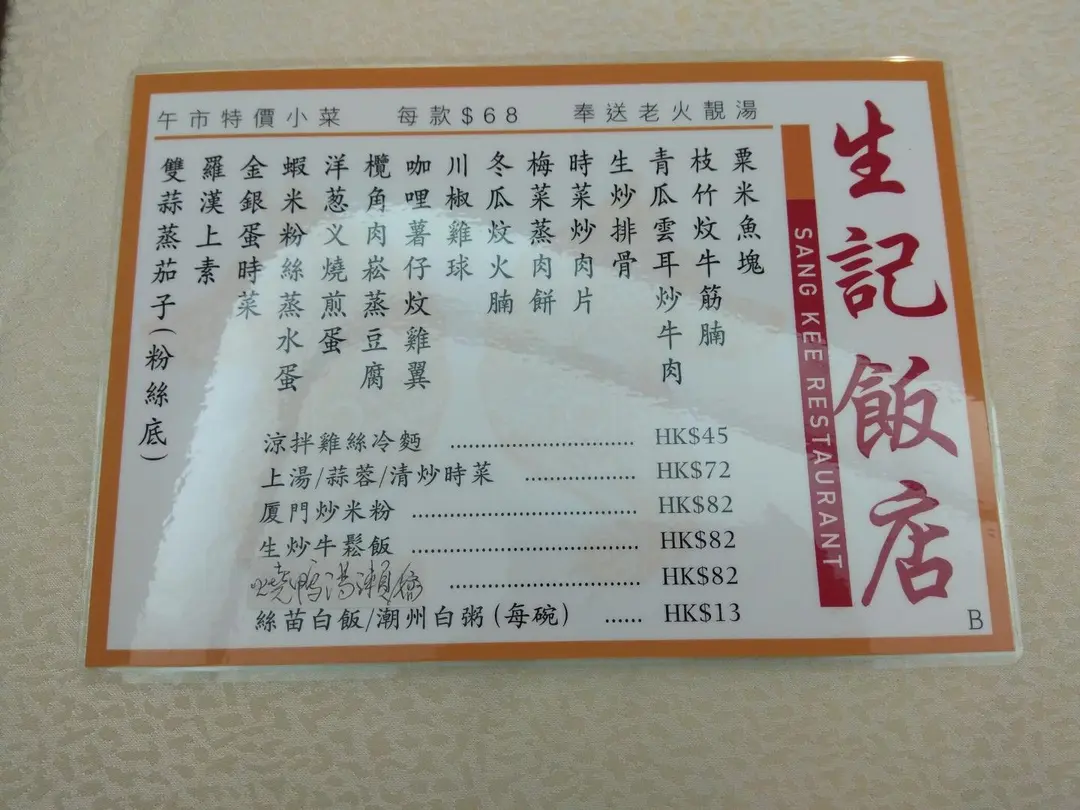 生記飯店
SANG KEE RESTAURANT
午市特價小菜 每款$68 奉送老火靚湯
粟米魚塊
枝竹炆牛筋腩
青瓜雲耳炒牛肉
生炒排骨
時菜炒肉片
梅菜蒸肉餅
冬瓜炆火腩
川椒雞球
咖哩薯仔炆雞翼
欖角肉崧蒸豆腐
洋葱义燒煎蛋
蝦米粉絲蒸水蛋
金銀蛋時菜
羅漢上素
雙蒜蒸茄子(粉絲底)
涼拌雞絲冷麵 ........................ HK$45
上湯/蒜蓉/清炒時菜 .................. HK$72
厦門炒米粉 ............................. HK$82
生炒牛鬆飯 ............................. HK$82
燒鴨湯瀨 ........................ HK$82
絲苗白飯/潮州白粥(每碗) ...... HK$13
B